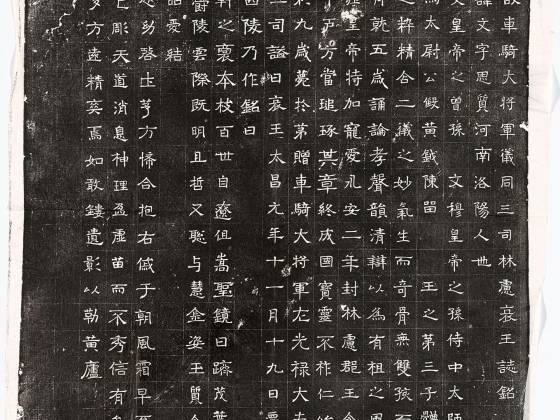 故車騎大將軍儀同三司林慮哀王誌銘
諱文字思質河南洛陽人也
文皇帝之曾孫 文穆皇帝之孫侍中太師
太尉公假黃鉞陳留 王之第三子體
之粹精合二儀之妙氣生而奇骨無雙孩
有就五歲誦論孝聲韻清辯以為有祖之風
皇帝特加寵愛永安二年封林慮郡王食
戶方當琢其章終成國寶靈不祚仁
九歲薨於第贈車騎大將軍左光祿大夫
三司謚曰哀王太昌元年十一月十九日窆
西陵乃作銘曰
軒之裔本枝百世自遼徂嵩聖鏡日躋茂葉
蔚陵雲際既明且哲又聰与慧金姿玉質
愛結
劭啓土茅方合抱右戚于朝風霜早
上彫天道消息神理盈虛苗而不秀信有
多方迷精爽焉如敢鏤遺影以勒黃廬